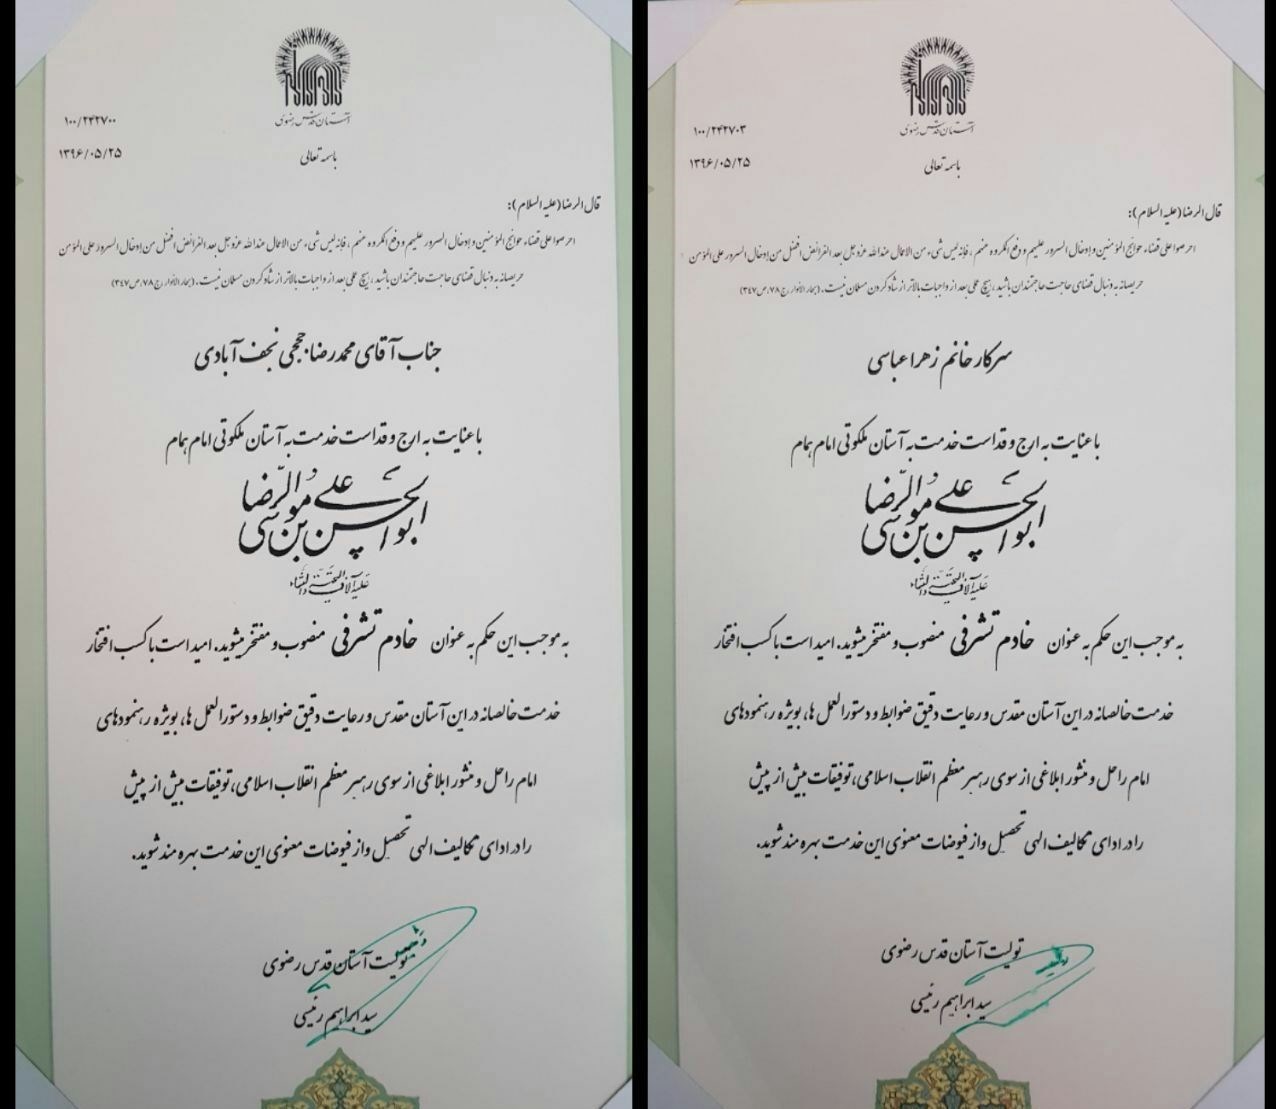 آستان قدس رضوی
۱۰۰/۲۴۲۷۰۰
۱۳۹۶/۰۵/۲۵
باسمه تعالی
قال الرضا (علیه السلام):
احرصوا علی قضاء حوائج المؤمنین و إدخال السرور علیهم و دفع المکروه عنهم، فإنه لیس شیء من الاعمال عندالله عزوجل بعد الفرائض افضل من إدخال السرور علی المؤمن
حریصانه به دنبال قضای حاجت حاجتمندان باشید، هیچ عملی بعد از واجبات بالاتر از شاد کردن مسلمان نیست. (بحار الانوار، ج ۷۸، ص ۳۴۷)
جناب آقای محمدرضا حججی نجف آبادی
با عنایت به ارج و قداست خدمت به آستان ملکوتی امام همام
ابوالحسن علی بن موسی الرضا
علیه آلاف التحیة والثناء
به موجب این حکم به عنوان خادم تشرفی منصوب و مفتخر میشوید. امید است با کسب افتخار
خدمت خالصانه در این آستان مقدس و رعایت دقیق ضوابط و دستورالعمل ها، بویژه رهنمودهای
امام راحل و منشور ابلاغی از سوی رهبر معظم انقلاب اسلامی، توفیقات بیش از پیش
را در ادای تکالیف الهی تحصیل و از فیوضات معنوی این خدمت بهره مند شوید.
تولیت آستان قدس رضوی
سید ابراهیم رئیسی
آستان قدس رضوی
۱۰۰/۲۴۲۷۰۳
۱۳۹۶/۰۵/۲۵
باسمه تعالی
قال الرضا (علیه السلام):
احرصوا علی قضاء حوائج المؤمنین و إدخال السرور علیهم و دفع المکروه عنهم، فإنه لیس شیء من الاعمال عندالله عزوجل بعد الفرائض افضل من إدخال السرور علی المؤمن
حریصانه به دنبال قضای حاجت حاجتمندان باشید، هیچ عملی بعد از واجبات بالاتر از شاد کردن مسلمان نیست. (بحار الانوار، ج ۷۸، ص ۳۴۷)
سرکار خانم زهرا عباسی
با عنایت به ارج و قداست خدمت به آستان ملکوتی امام همام
ابوالحسن علی بن موسی الرضا
علیه آلاف التحیة والثناء
به موجب این حکم به عنوان خادم تشرفی منصوب و مفتخر میشوید. امید است با کسب افتخار
خدمت خالصانه در این آستان مقدس و رعایت دقیق ضوابط و دستورالعمل ها، بویژه رهنمودهای
امام راحل و منشور ابلاغی از سوی رهبر معظم انقلاب اسلامی، توفیقات بیش از پیش
را در ادای تکالیف الهی تحصیل و از فیوضات معنوی این خدمت بهره مند شوید.
تولیت آستان قدس رضوی
سید ابراهیم رئیسی